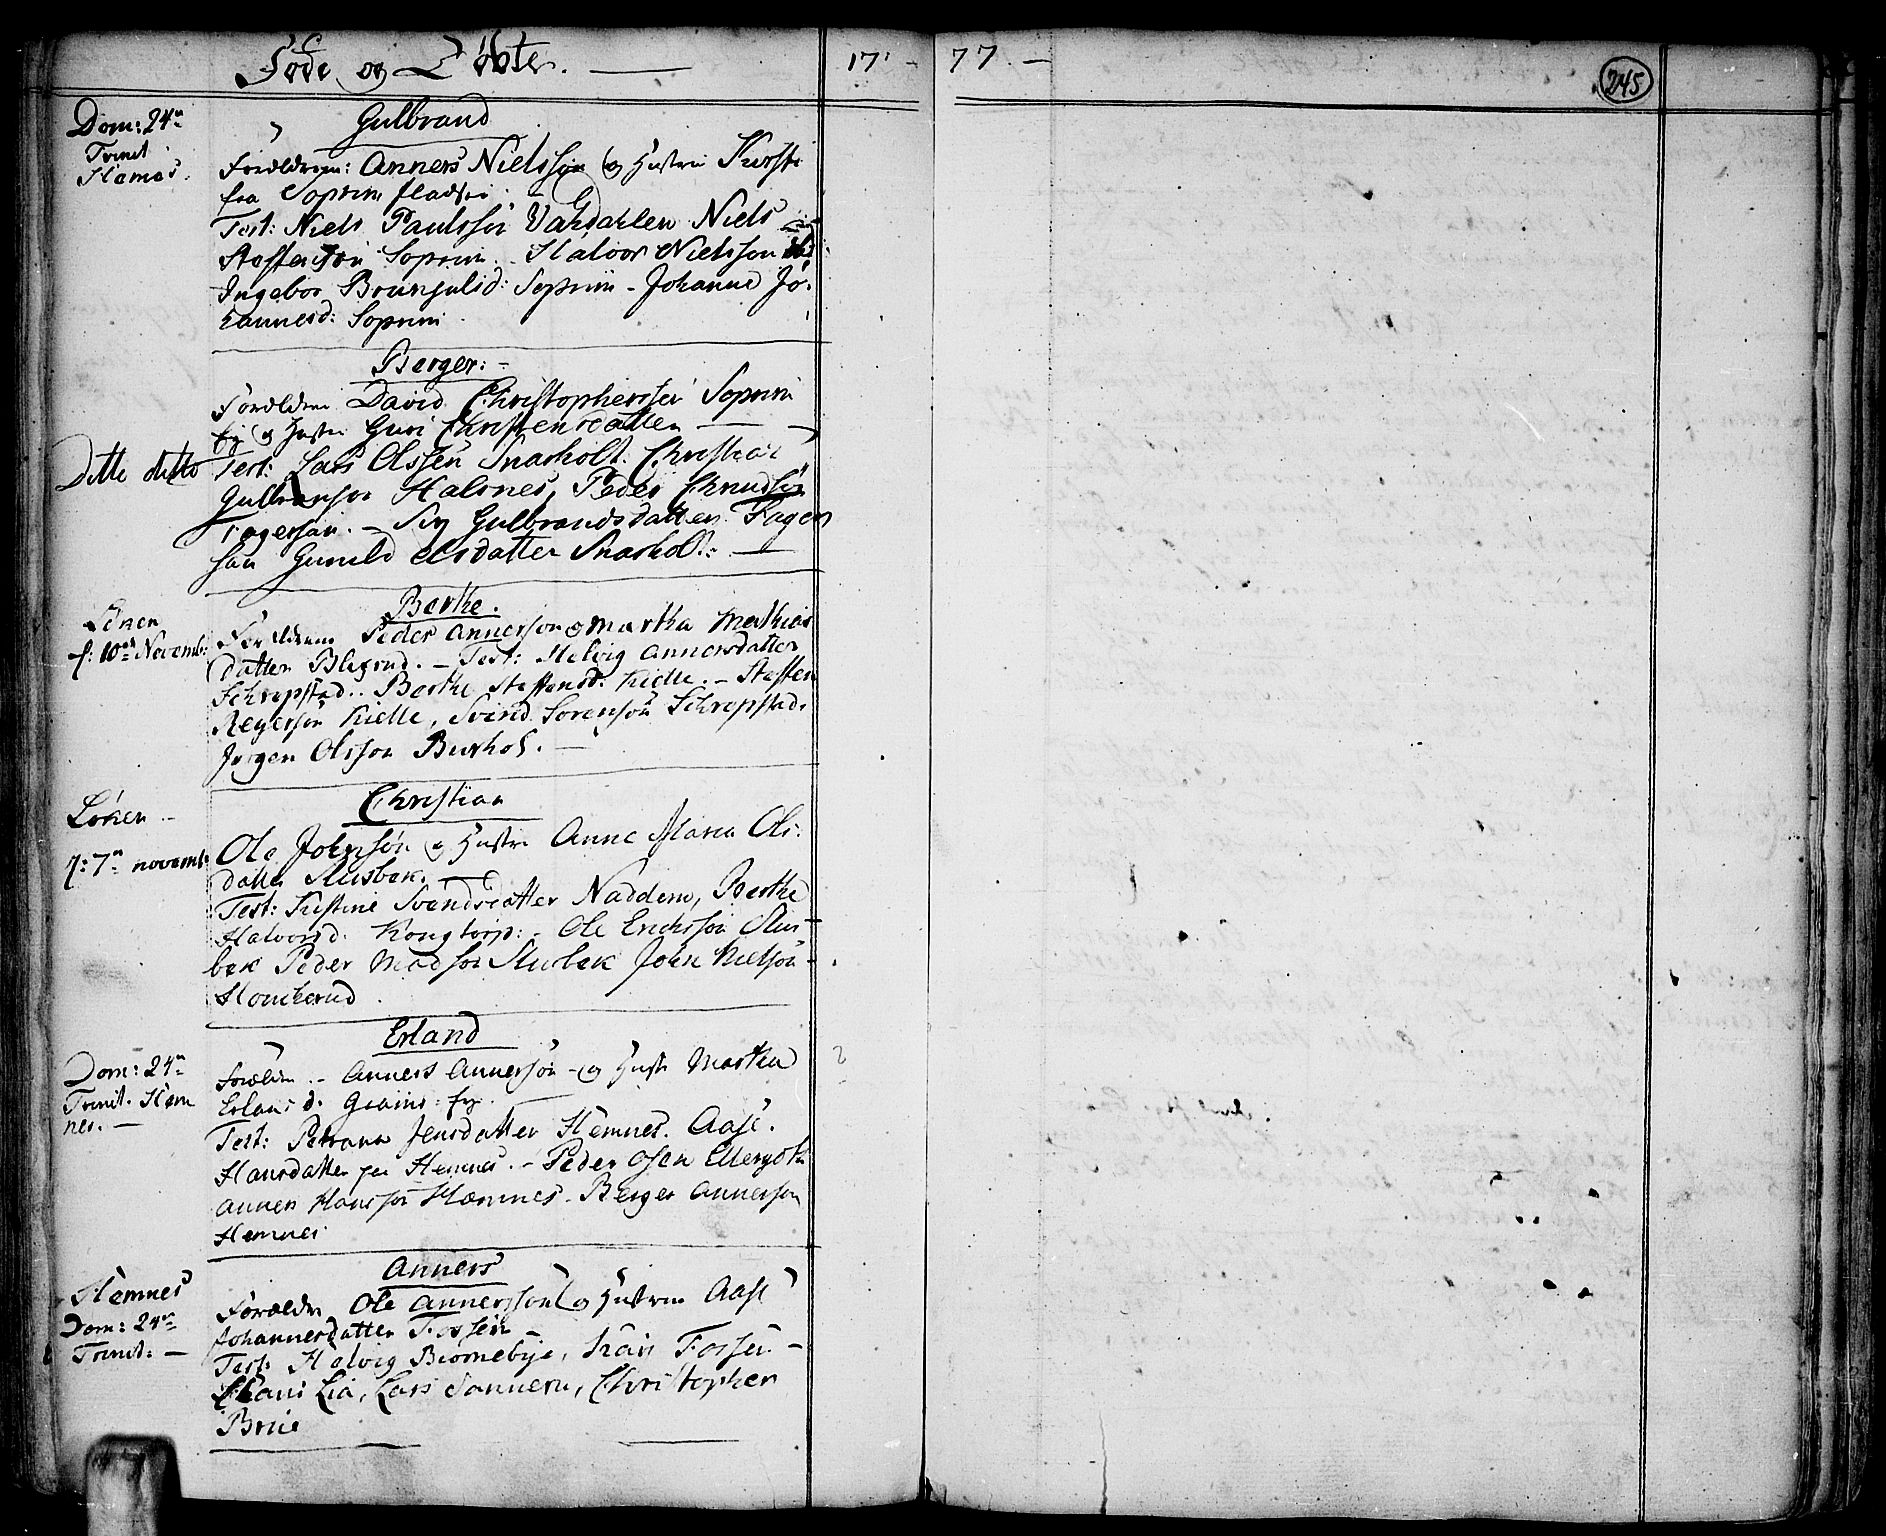 Føde og Døbte. — 17 77. — 245
Dom: 24de
Trinit
Hæmnes.
Gulbrand
Forældrene: Anners Nielssøn og Hustrue Kirsti
fra Soprim pladsen.
Test: Niels Paulssøn Niels
Steffensøn Soprim. Halvor Nielsson
Ingebor Brunjulsd: Soprim - Johanne Jo-
hannesd: Soprim
Berger: -
Forældrene David Christopherssøn Soprim
og Hustrue Guri Christensdatter —
Ditto ditto
Test: Lars Olssen Snarholt. Christian
Gulbransøn Halsnes, Peder Chnudsøn
Fagersan. - Siv Gulbrandsdatter Fager
san Gunild Elsdatter Snarholt. —
Løken
f: 10de Novemb:
Berthe.
Forældrene Peder Annersøn & Martha Mathias
datter. - Test: Helvig Annersdatter
Schrepstad. Berthe Steffensd: Kielle. - Steffen
Reyersøn Kielle, Svend Sørensøn Schrepstad.
Jørgen Olsson Burhol. —
Løken -
f: 7de novemb:
Christian
Ole Johnsøn og Hustrue Anne Maria Ols-
datter Slusbek. —
Test: Kistine Svendsdatter Naddem, Berthe
Halvorsd. Kongtorp: - Ole Erichssøn Slus-
bek Peder Madsøn Slusbek John Nielsøn
Homkerud.
Dom: 24de
Trinit. Hem
nes. —
Erland
Forældre. - Anners Annersøn - og Hustr Martha
Erlansd. Grains: ey.
Test: Petrone Jensdatter Hemnes. Aase
Hansdatter Hemnes. - Peder Osen
Anners Hanssøn Hæmnes. Berger Annersøn
Hemnes
Hæmnes
Dom: 24de
Trinit: —
Anners
Forældre Ole Annerssøn og Hustrue Aase
Johannesdatter Fossen
Test: Helvig Biørnebye, Fossen -
Hans Lia, Lars Sannern, Christopher
Brue